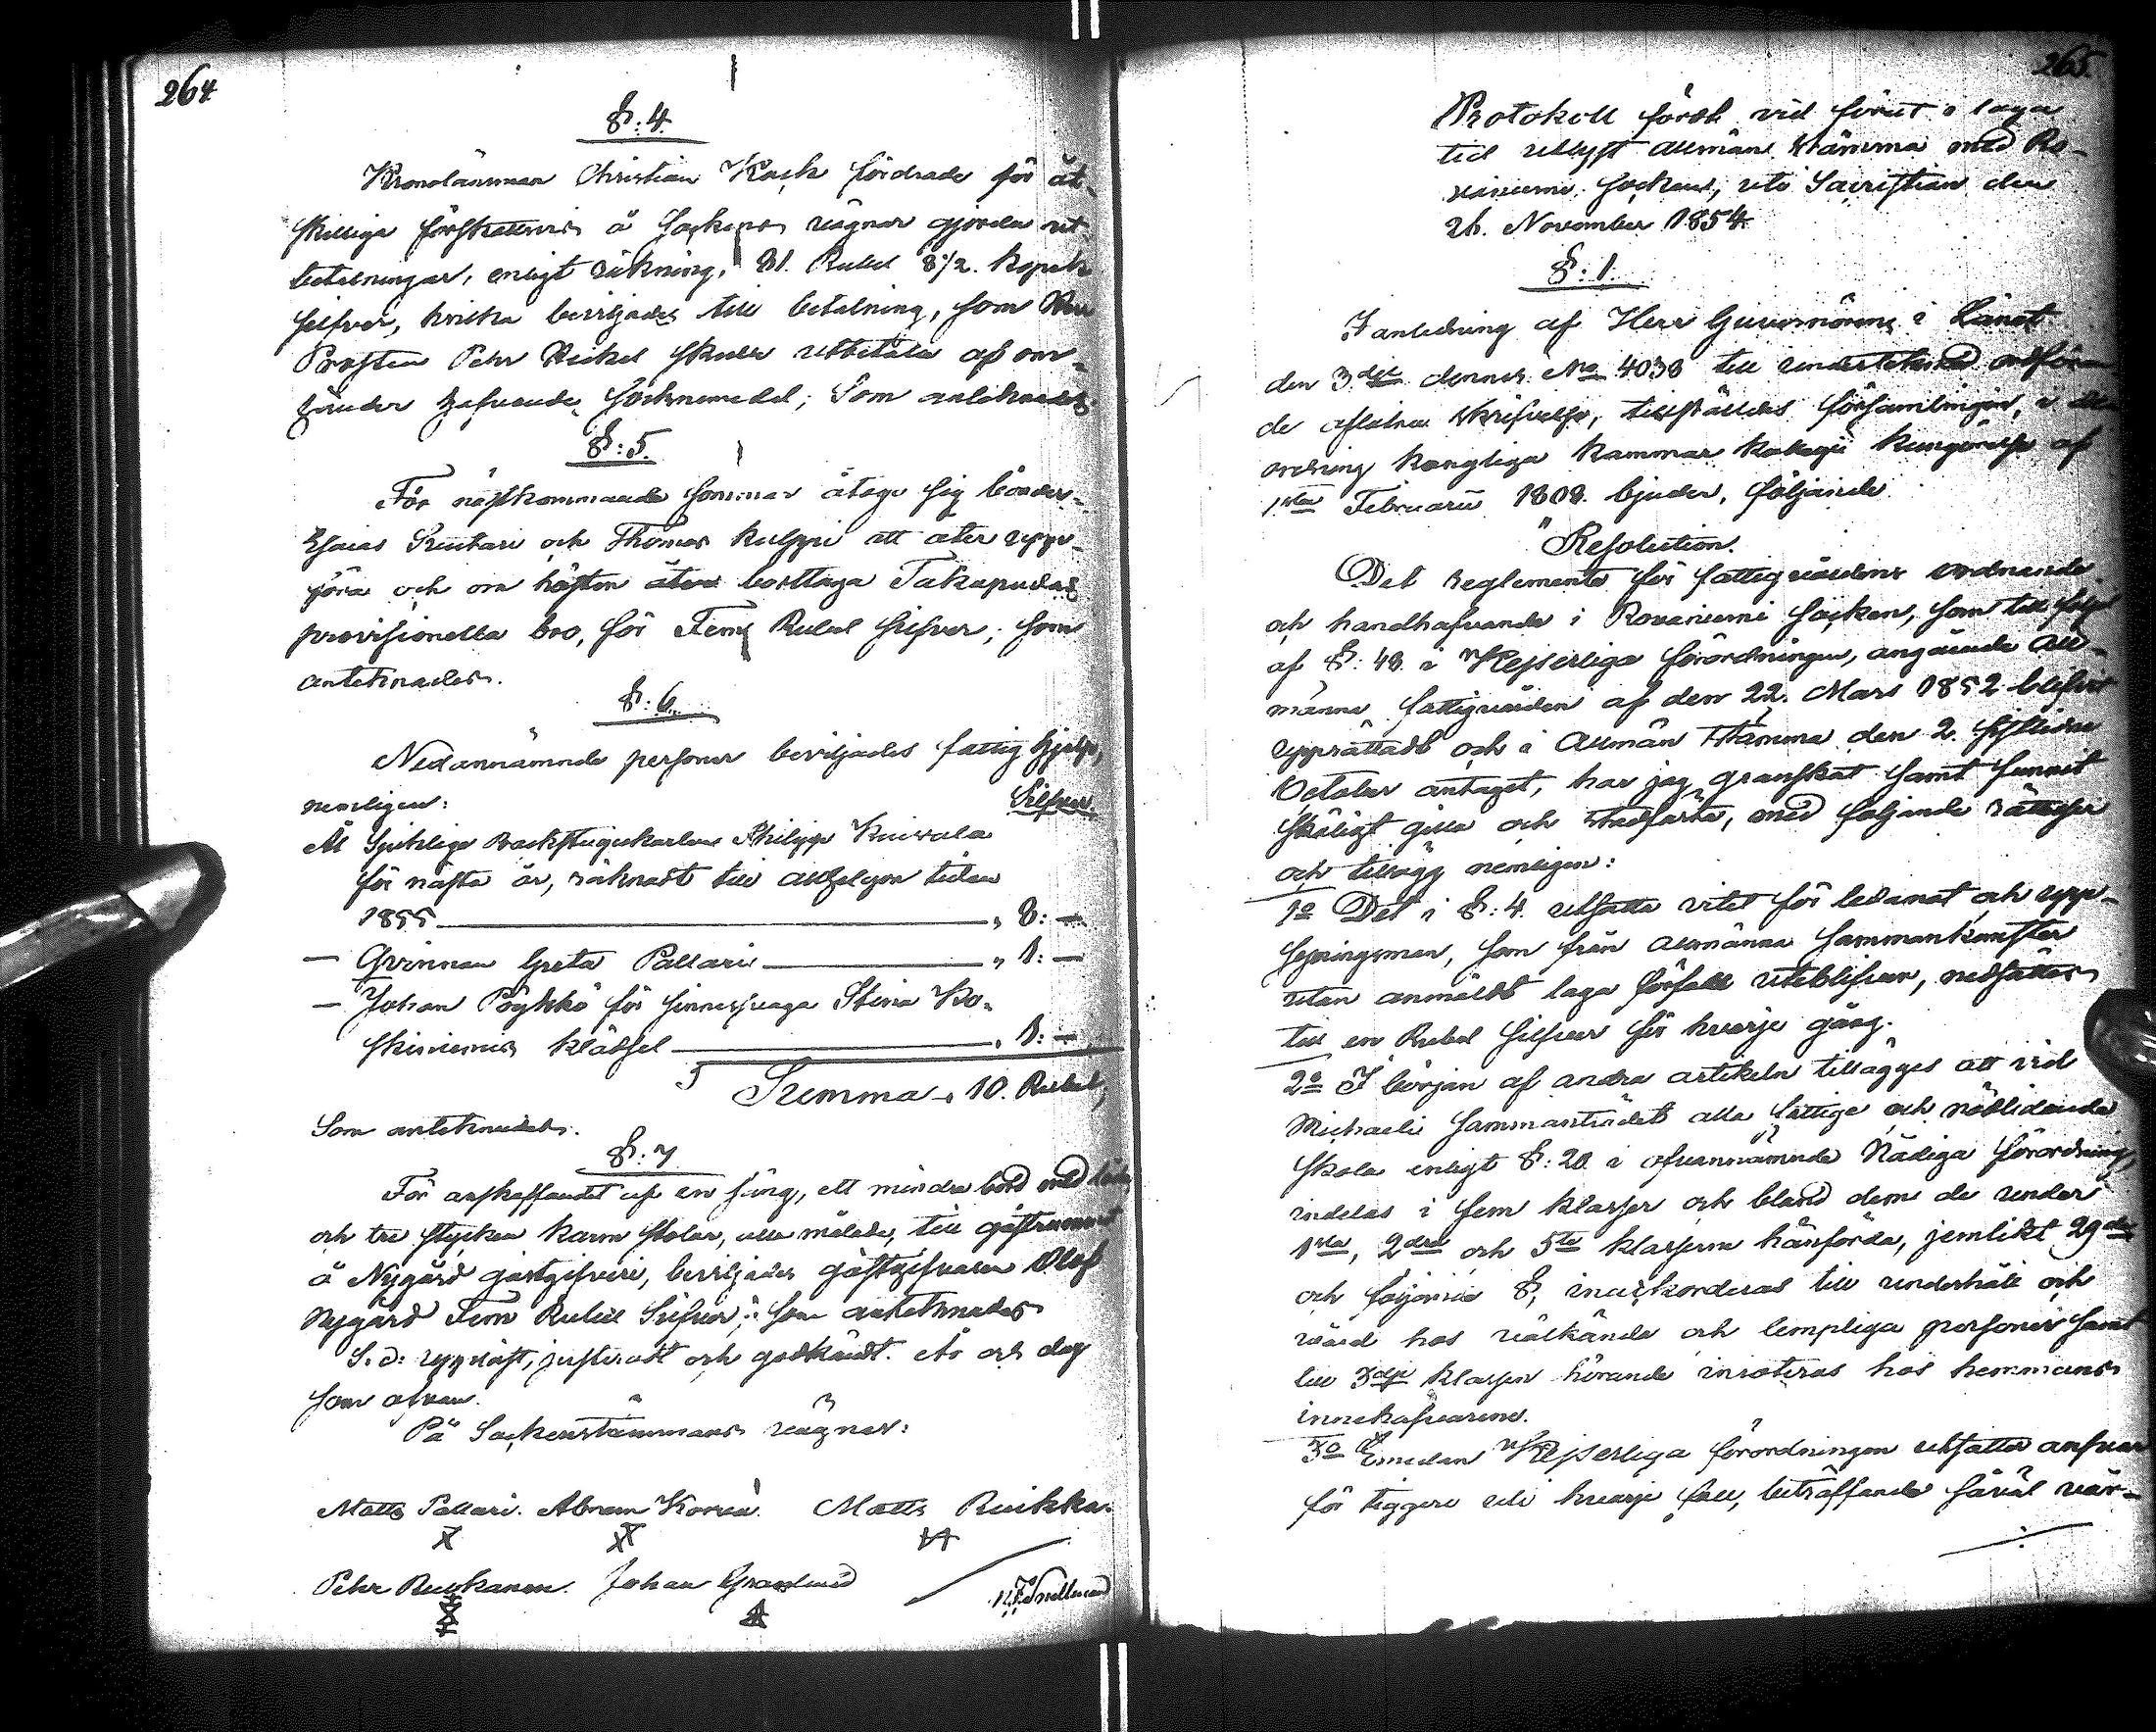 264
§: 4.
Kronolänsman Christian Koch fordrade för åt-
skilliga förskottsvis å Sockens vägnar gjorda ut-
betalningar, enligt räkning, 81. Rubel 8 1/2. kopek
silfver, hvilka beviljades till betalning, som Herr
Prosten Pehr Heikel skulle utbetala af om-
händer hafvande sockenmedel; Som anteknades.
§: 5.
För nästkommande sommar åtogo sig bönder-
Esaias Suutari och Thomas Kulppi att åter upp-
föra och om hösten åter borttaga Takapudas
provisionella bro, för Fem Rubel silfver; som
anteknades.
§: 6.
Nedannämnde personer beviljades fattig hjelp,
nemligen:
Silfver.
At Sjuklige Backstugukarlen Philipp Kuivala
för nästa år, räknadt till allhelgon tiden
1855 " 8: —
— Qvinnan Greta Pallari " 1: —
— Johan Pöykkö för sinnessvaga Stina Ko-
skiniemis klädsel " 1: —
Summa " 10. Rubel;
Som anteknades.
§: 7
För anskaffandet af en säng, ett mindre bord med låda
och tre stycken karm stolar, alla målade, till gästrummet
å Nygård gästgifveri, beviljades gästgifvaren Olof
Nygård Fem Rubel Silfver; som anteknades
S. d: uppläst, justeradt och godkändt. År och dag
som ofvan.
På Sockenstämmans vägnar:
Matts Pallari. Abram Korva. Matts Ruikka.
Pehr Ruokanen. Johan Granlund
N. F. Snellmand
265.
Protokoll fördt vid förut i laga
tid utlyst allmän Stämma med Ro-
vaniemi Sockens, uti Sacristian den
26. November 1854
§: 1.
I anledning af Herr Guvernörens i Länet
den 3.dje dennes No 4038 till undertecknad ordföran
de aflåtna Skrifvelse, tillställdes församlingen, i den
ordning Kongliga Kammar Kollegii kungörelse af
1sta Februarii 1808. bjuder, följande
"Resolution.
Det reglemente för fattigvårdens ordnande
och handhafvande i Rovaniemi Socken, som till följd
af §: 48. i Kejserliga förordningen, angående all-
männa fattigvården af den 22. Mars 1852 blifvit
upprättadt och i Allmän Stämma den 2. sistlidne
October antaget, har jag granskat samt funnit
skäligt gilla och stadfästa, med följande rättelser
och tillägg nemligen:
1o Det i §: 4. utsatta vitet för ledamot och upp-
syningsman, som från allmänna sammankomster
utan anmäldt laga förfall uteblifver, nedsättes
till en Rubel silfver för hvarje gång.
2o I början af andra artikeln tillägges att vid
Michaelis sammanträdet alla fattige och nödlidande
skola enligt §: 20 i ofvannämnde Nådiga förordning,
indelas i fem klasser och bland dem de under
1sta, 2dra och 5te klasserna hänförda, jemlikt 29de
och följande §, inackorderas till underhåll och
vård hos välkände och lempliga personer samt
till 3dje klassen hörande inroteras hos hemmans
innehafvarene.
3o Emedan Kejserliga förordningen utsätter ansvar
för tiggeri uti hvarje fall, beträffande såväl vär-